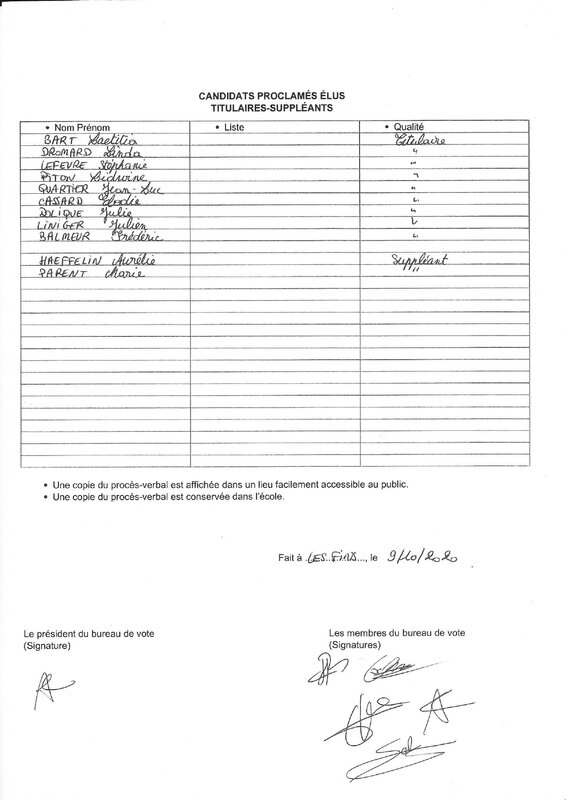 CANDIDATS PROCLAMÉS ÉLUS
TITULAIRES-SUPPLÉANTS
• Nom Prénom • Liste • Qualité
BART Laetitia Titulaire
DROMARD Linda "
LEFEVRE Stéphanie "
PITON Sidwine "
QUARTIER Jean-Luc "
CASSARD Elodie "
Julie "
LINIGER Julien "
BALMEUR Frédéric "
HAEFFELIN Aurélie Suppléant
PARENT Marie "
• Une copie du procès-verbal est affichée dans un lieu facilement accessible au public.
• Une copie du procès-verbal est conservée dans l'école.
Fait à LES FINS, le 9/10/2020
Le président du bureau de vote Les membres du bureau de vote
(Signature) (Signatures)